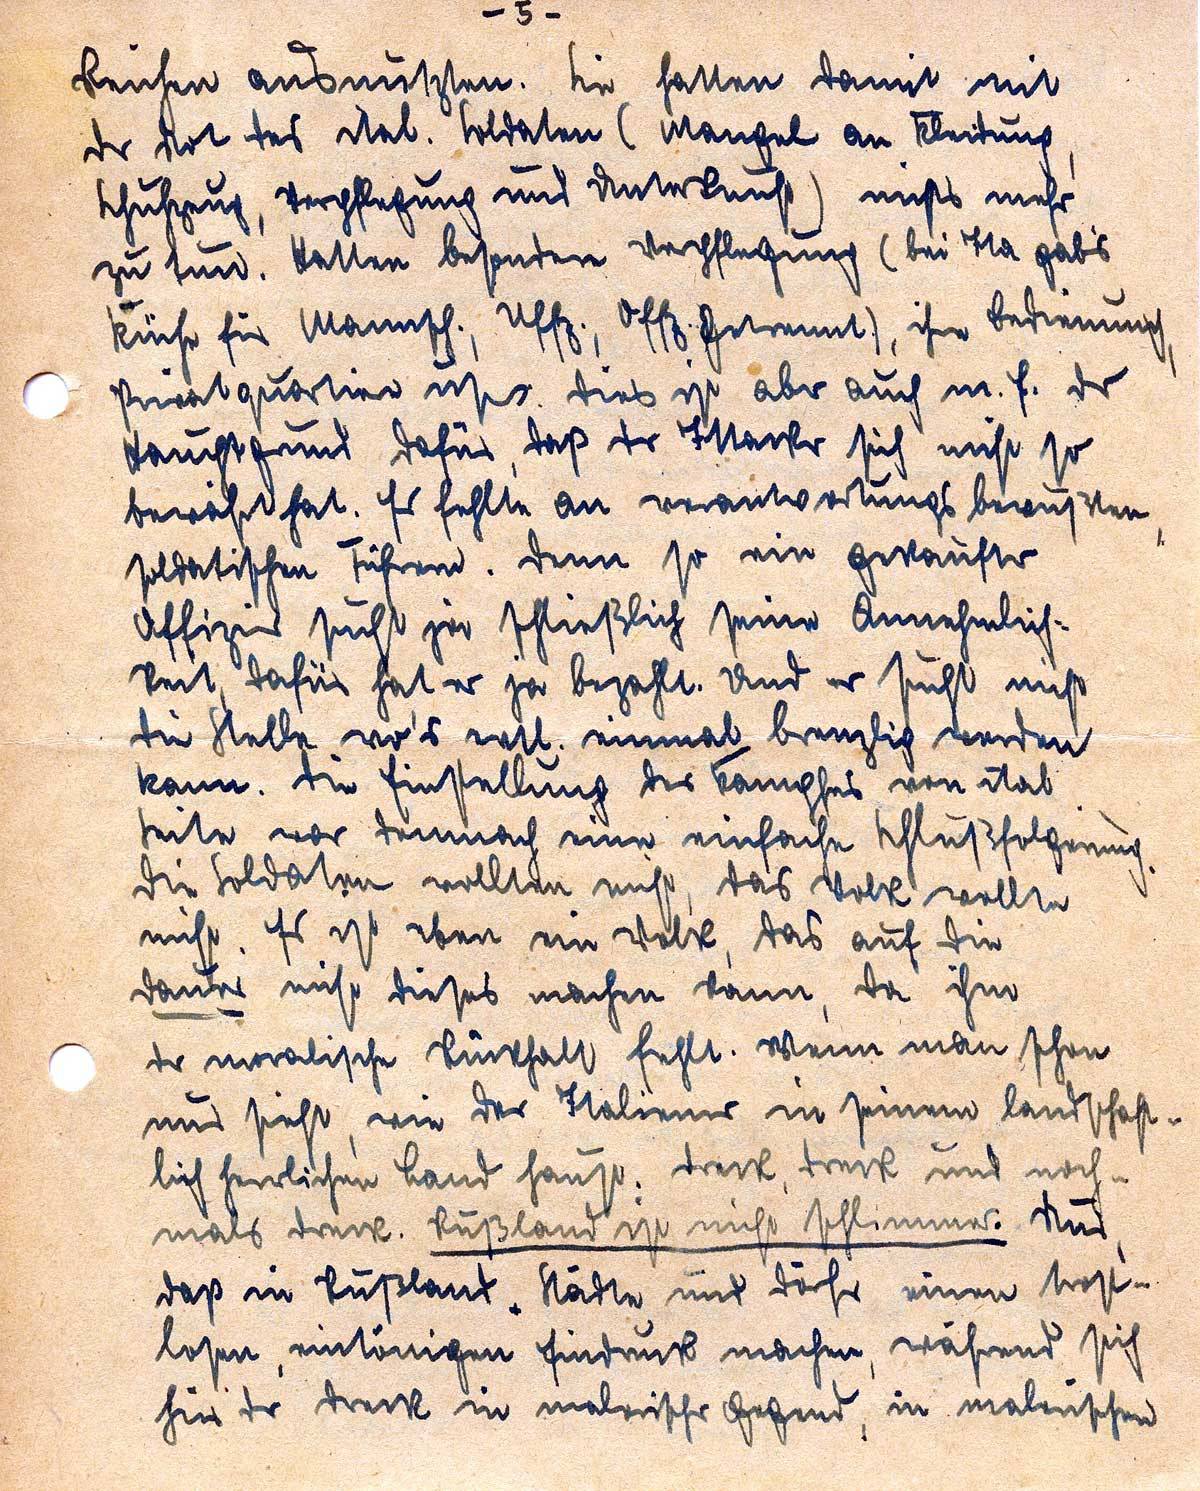 - 5 -
Reichen ausnutzten. Sie hatten damit mit
der Not des ital. Soldaten (Mangel an Kleidung,
Schuhzeug, Verpflegung und Unterkunft) nichts mehr
zu tun. Hatten besondere Verpflegung (bei Ita gab's
Küche für Mannsch., Uffz., Offz. getrennt), ihre Bedienung,
Privatquartiere usw. Dies ist aber auch m. E. der
Hauptgrund dafür, daß der sich nicht so
bewährt hat. Es fehlte an verantwortungsbewußten,
soldatischen Führern. Denn so ein gekaufter
Offizier sucht ja schließlich seine Annehmlich-
keit, dafür hat er ja bezahlt. Und er sucht nicht
die Stelle wo's evtl. einmal brenzlig werden
kann. Die Einstellung des Kampfes von ital
Seite war demnach eine einfache Schlußfolgerung.
Die Soldaten wollten nicht, das Volk wollte
nicht. Es ist eben ein Volk, das auf die
Dauer nicht dieses machen kann, da ihm
der moralische Rückhalt fehlt. Wenn man schon
nur sieht, wie der Italiener in seinem landschaft-
lich herrlichen Land haust. Dreck, Dreck und noch-
mals Dreck. Rußland ist nicht schlimmer. Nur,
daß in Rußland Städte und Dörfer einen trost-
losen, eintönigen Eindruck machen, während sich
hier der Dreck in malerischer Gegend, in malerischen